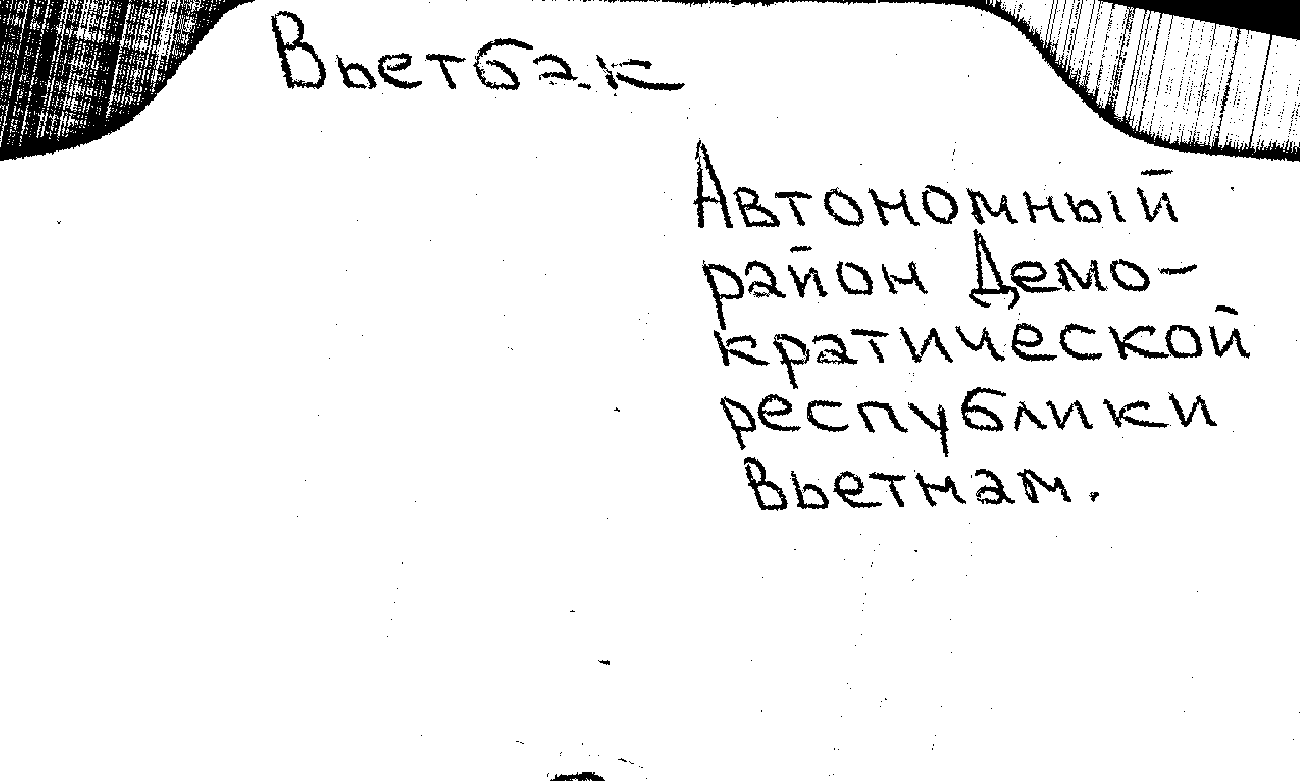 Вьетбак
Автономный
район Демо-
кратической
республики
Вьетнам.